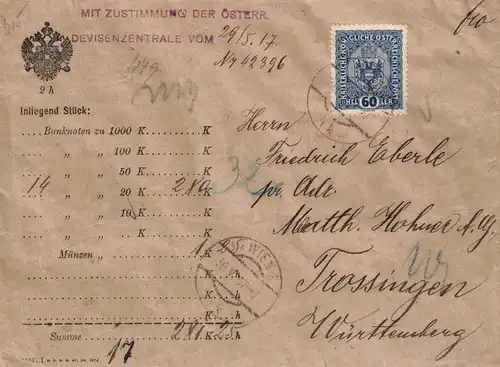 MIT ZUSTIMMUNG DER ÖSTERR.
DEVISENZENTRALE VOM 29/5.17.
Nr 42396
2 h
KAISERLICHE KÖNIGLICHE ÖSTERREICHISCHE POST
HELLER 60 HELLER
Inliegend Stück:
Banknoten zu 1000 K K
„ „ 100 K
„ „ 50 K
14 „ „ 20 K 280
„ „ 10 K
„ „ .. K K
Münzen „ 1 K
K h
K h
K h
Summe 281.25 h
17
32
WIEN
Herrn
Friedrich Eberle
pr. Adr
Matth. Hohner A.G.
Trossingen
Württemberg